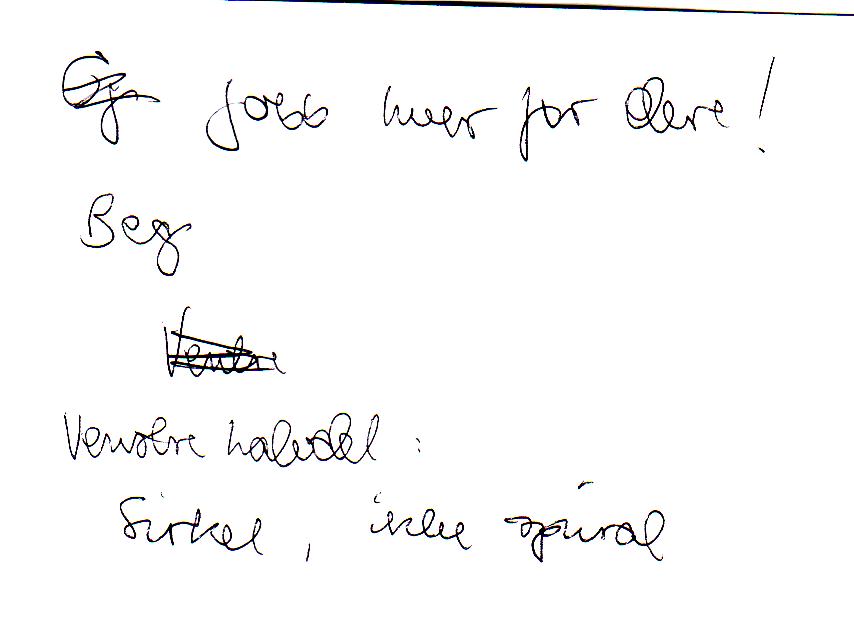 jobb hver for dere!
Beg
Venstre
Venstre halvdel:
Sirkel, ikke spiral